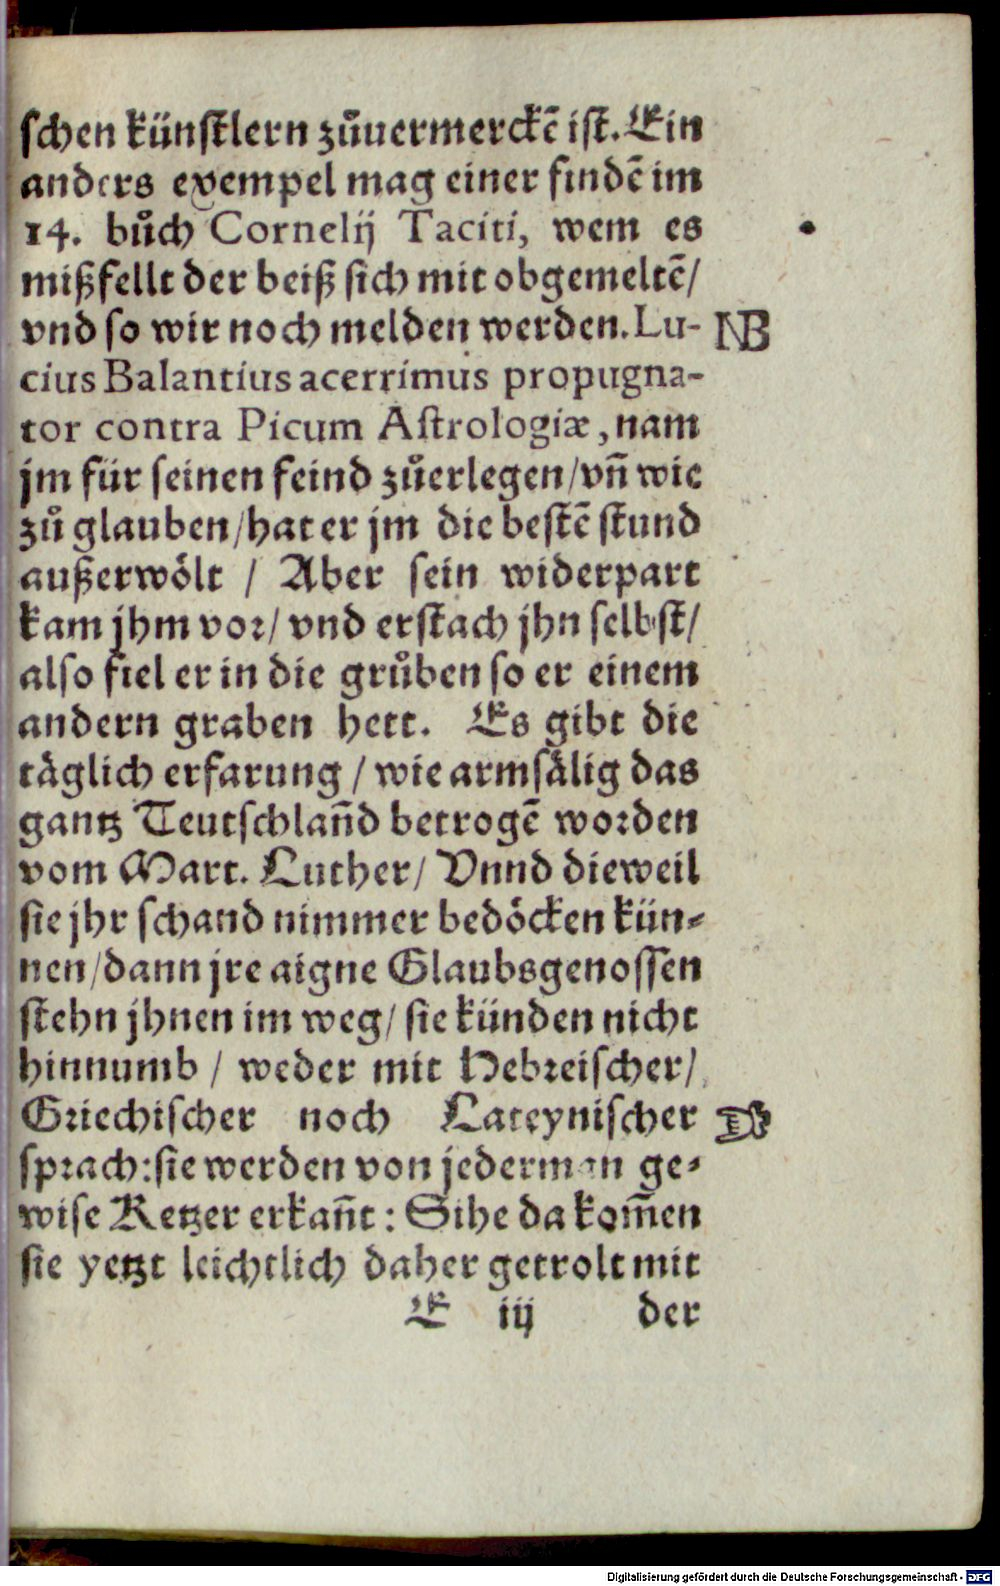 schen künstlern zůuermerckē ist. Ein
anders exempel mag einer findē im
14. bůch Cornelij Taciti, wem es
mißfellt der beiß sich mit obgemeltē/
vnd so wir noch melden werden. Lu-
NB
cius Balantius acerrimus propugna-
tor contra Picum Astrologiæ, nam
jm für seinen feind zůerlegen/vñ wie
zů glauben/hat er jm die bestē stund
außerwölt / Aber sein widerpart
kam jhm vor/ vnd erstach jhn selbst/
also fiel er in die grůben so er einem
andern graben hett. Es gibt die
täglich erfarung / wie armsälig das
gantz Teutschlañd betrogē worden
vom Mart. Luther/ Vnnd dieweil
sie jhr schand nimmer bedöcken kün-
nen/dann jre aigne Glaubsgenossen
stehn jhnen im weg/ sie künden nicht
hinnumb / weder mit Hebreischer/
Griechischer noch Lateynischer
sprach: sie werden von jederman ge-
wise Ketzer erkañt : Sihe da kom̃en
sie yetzt leichtlich daher getrolt mit
E iij der
Digitalisierung gefördert durch die Deutsche Forschungsgemeinschaft - DFG